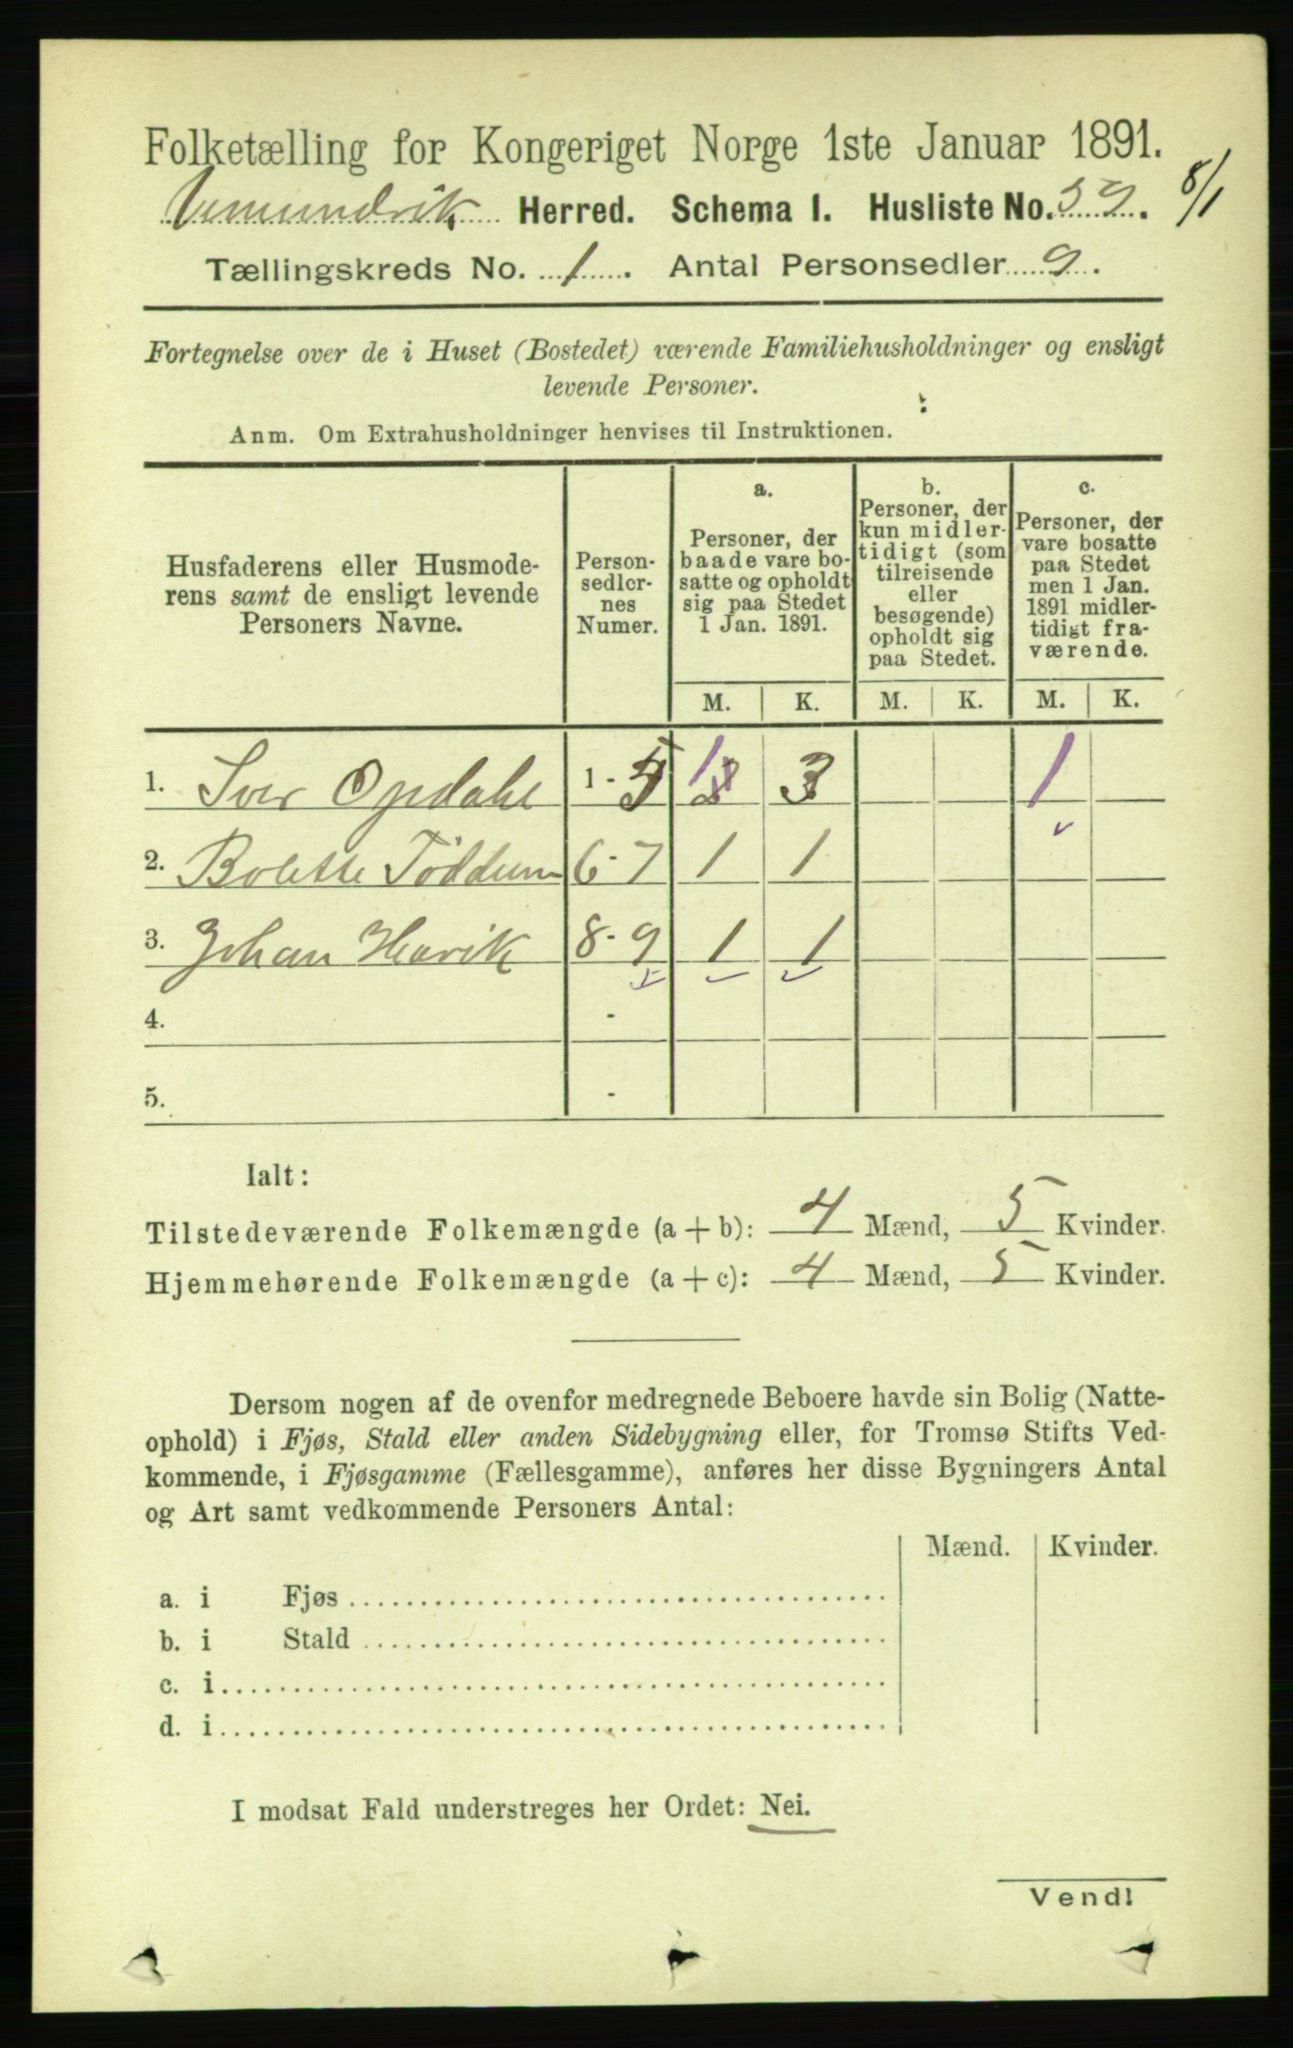 Folketælling for Kongeriget Norge 1ste Januar 1891.
Vemundvik Herred. Schema I. Husliste No. 39. 8/1
Tællingskreds No. 1. Antal Personsedler 9.
Fortegnelse over de i Huset (Bostedet) værende Familiehusholdninger og ensligt
levende Personer.
Anm. Om Extrahusholdninger henvises til Instruktionen.
Husfaderens eller Husmode-
rens samt de ensligt levende
Personers Navne.
Person-
sedler-
nes
Numer.
a.
Personer, der
baade vare bo-
satte og opholdt
sig paa Stedet
1 Jan. 1891.
b.
Personer, der
kun midler-
tidigt (som
tilreisende
eller
besøgende)
opholdt sig
paa Stedet.
c.
Personer, der
vare bosatte
paa Stedet
men 1 Jan.
1891 midler-
tidigt fra-
værende.
M. K. M. K. M. K.
1. Iver Opdahl 1 - 5 1 3 1
2. Bolette Föddum 6 - 7 1 1
3. Johan Havik 8 - 9 1 1
4. -
5. -
Ialt:
Tilstedeværende Folkemængde (a + b): 4 Mænd, 5 Kvinder.
Hjemmehørende Folkemængde (a + c): 4 Mænd, 5 Kvinder.
Dersom nogen af de ovenfor medregnede Beboere havde sin Bolig (Natte-
ophold) i Fjøs, Stald eller anden Sidebygning eller, for Tromsø Stifts Ved-
kommende, i Fjøsgamme (Fællesgamme), anføres her disse Bygningers Antal
og Art samt vedkommende Personers Antal:
Mænd. Kvinder.
a. i Fjøs
b. i Stald
c. i
d. i
I modsat Fald understreges her Ordet: Nei.
Vend!